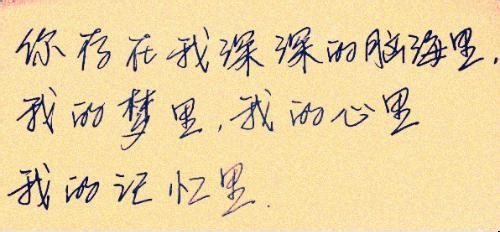 你存在我深深的脑海里.
我的梦里,我的心里
我的记忆里.